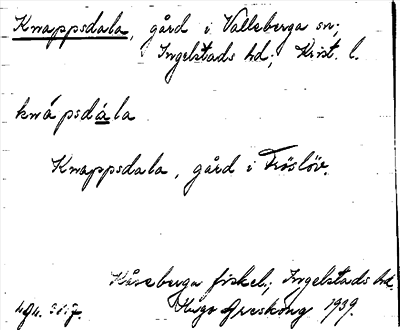 Knappsdala, gård i Valleberga sn;
Ingelstads hd; Krist. l.
knápsdála
Knappsdala, gård i Fröslöv.
Kåseberga fiskel.; Ingelstads hd.
Hugo Areskoug 1939.